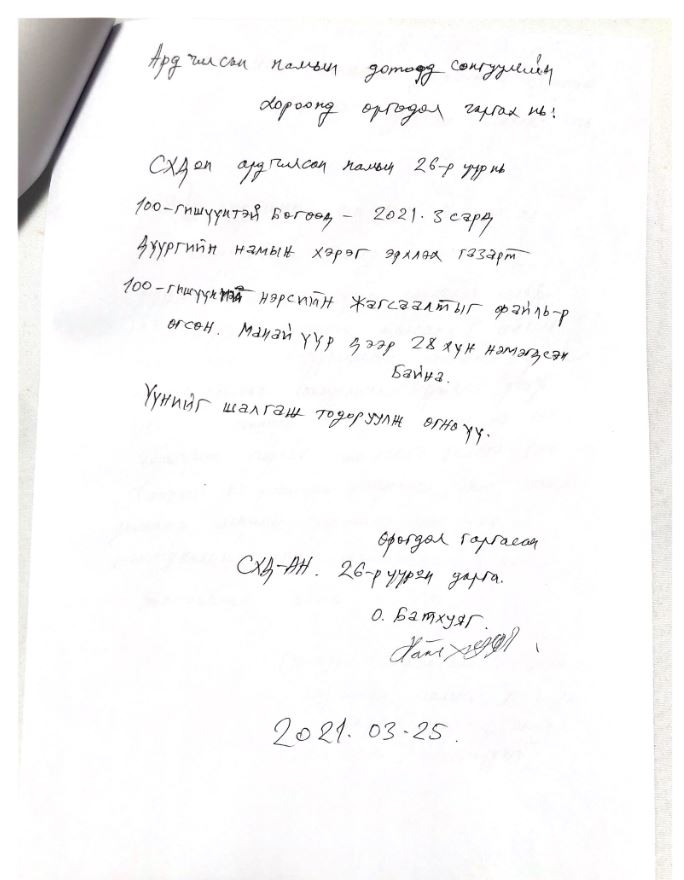 Ардчилсан намын дотоод сонгуулийн
хороонд өргөдөл гаргах нь:
СХД ын ардчилсан намын 26-р үүр нь
100-гишүүнтэй бөгөөд - 2021. 3 сард
Дүүргийн намын хэрэг эрхлэх газарт
100-гишүүнтэй нэрсийн жагсаалтыг файль-р
өгсөн. Манай үүр дээр 28 хүн нэмэгдсэн
байна.
Үүнийг шалгаж тодоруулж өгнө үү.
Өрөгдөл гаргасан
СХД-АН. 26-р үүрэн дарга.
О. Батхуяг.
2021. 03-25.